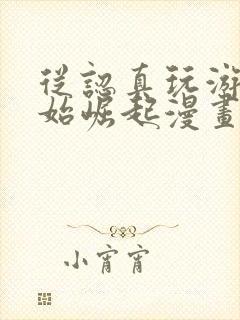 從認真玩游
始崛起漫畫
小宵宵